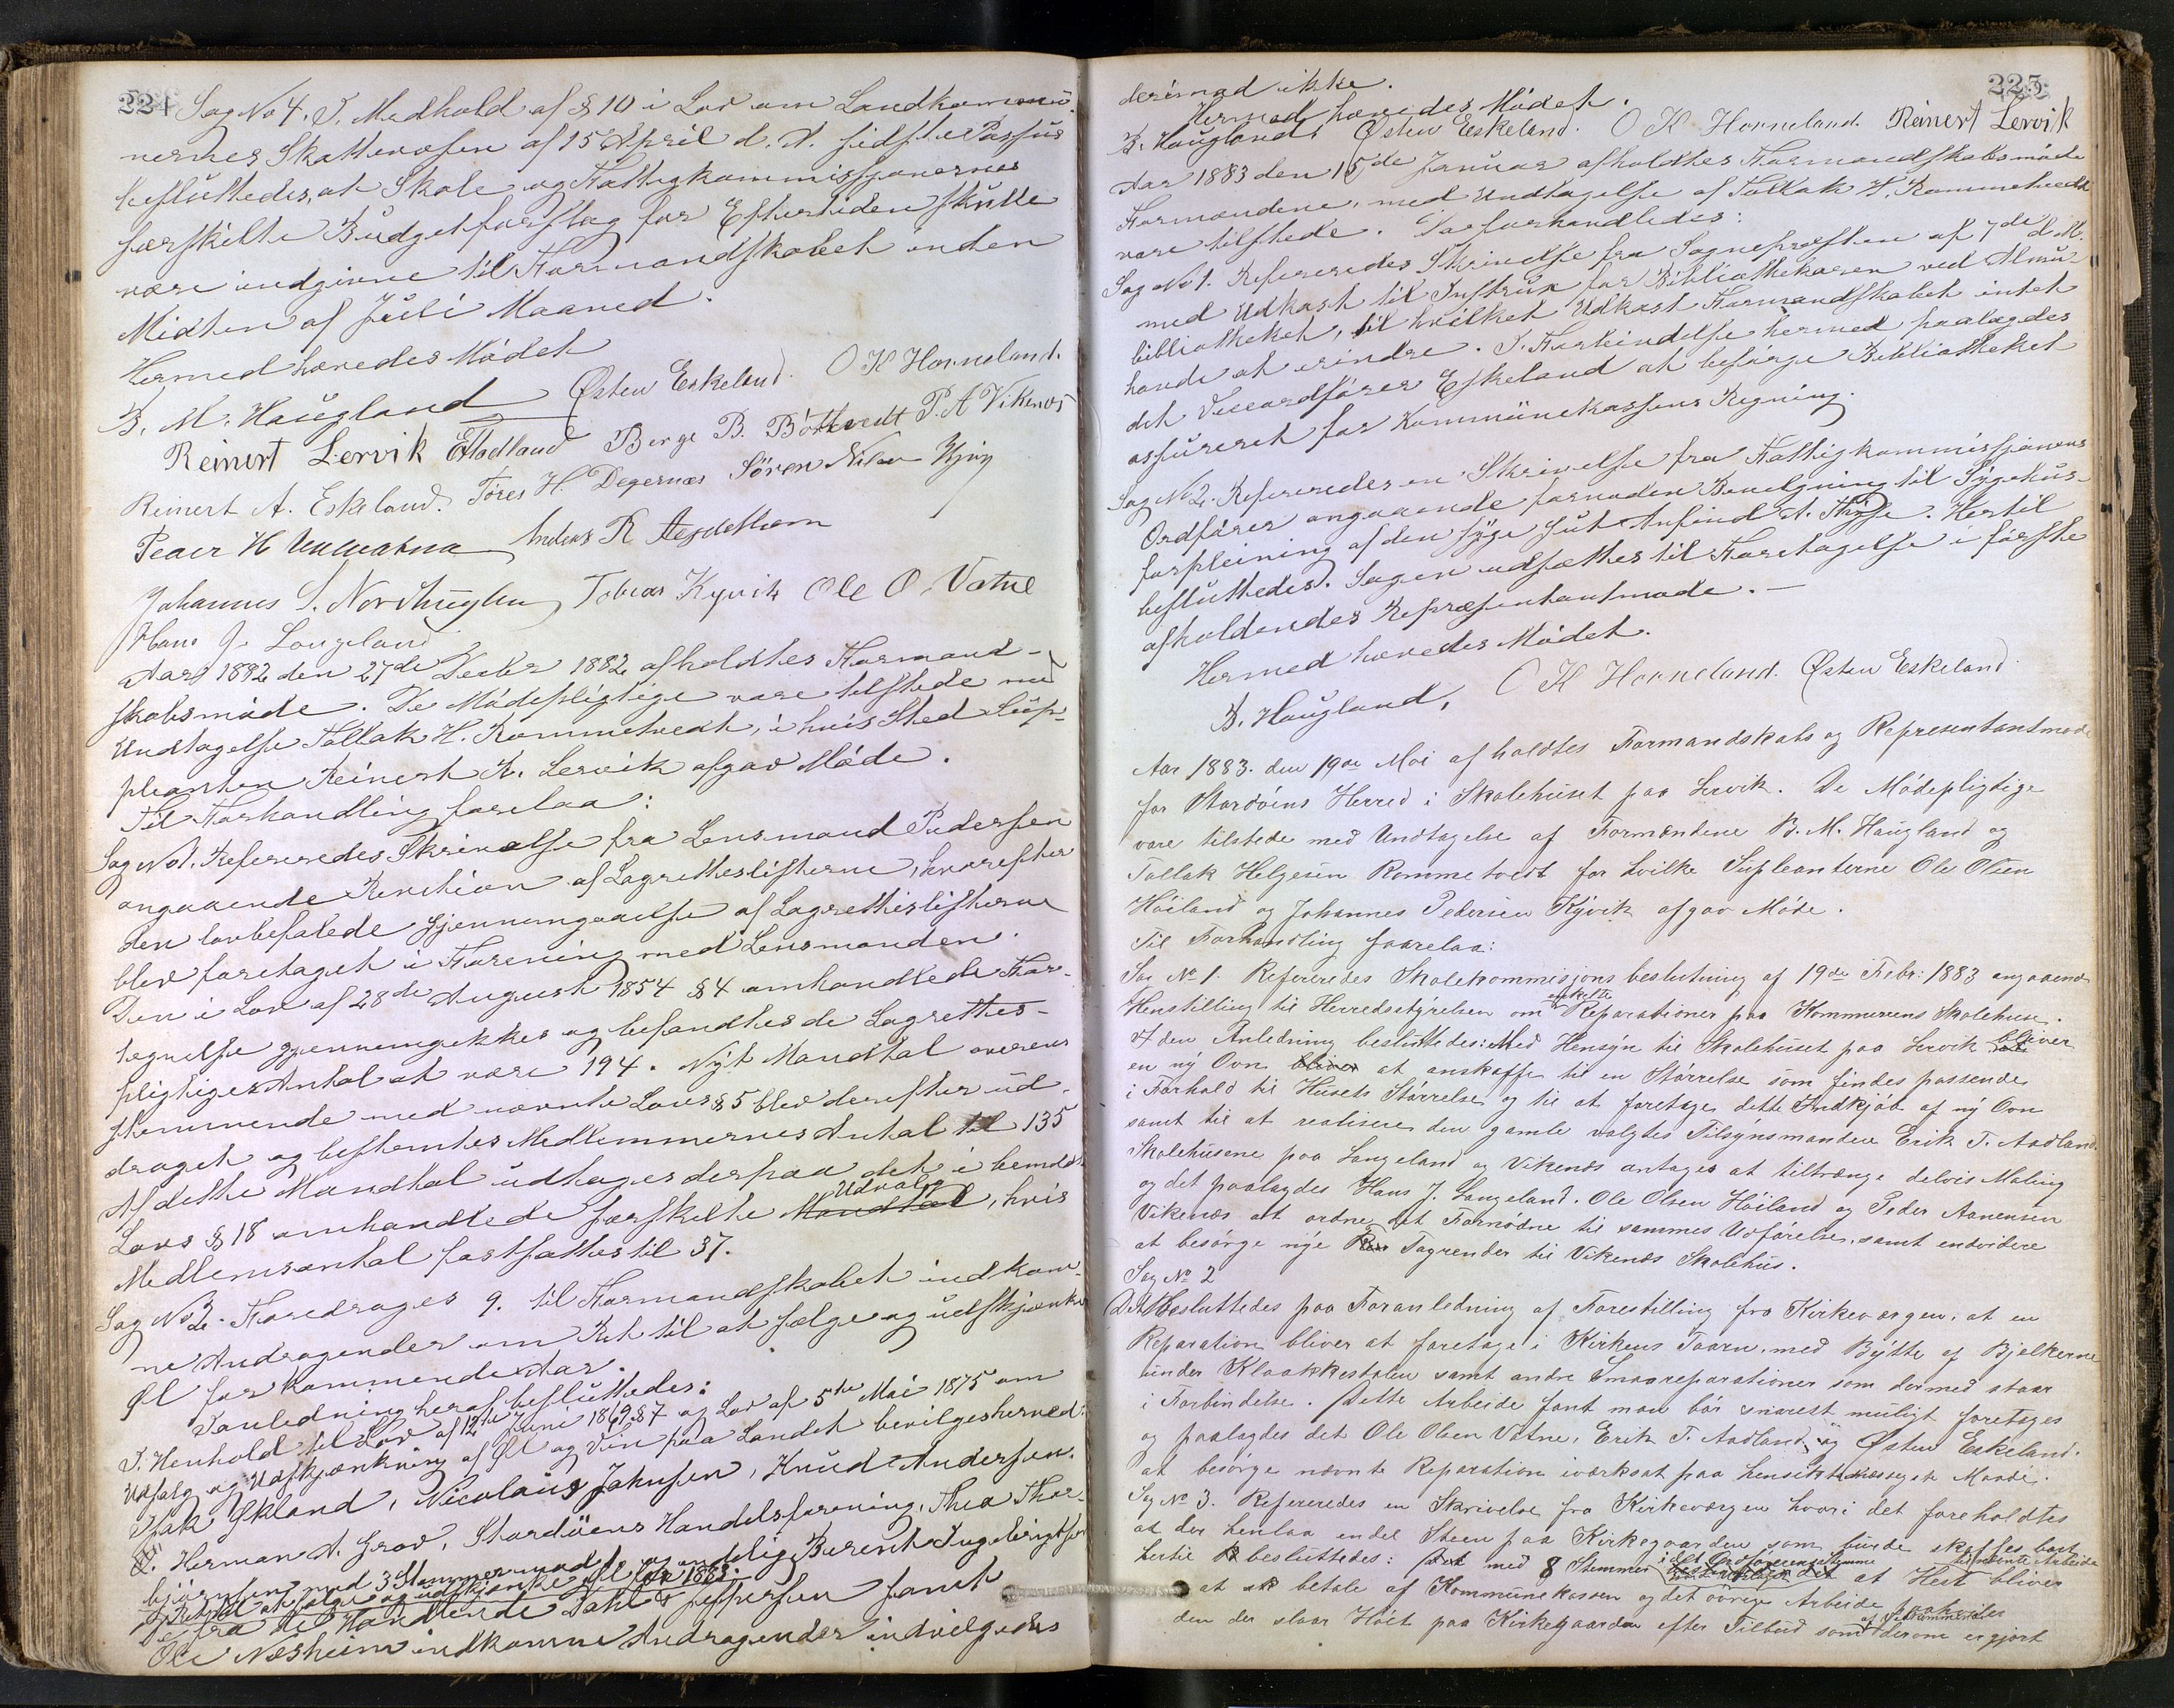 224
Sag No 4. I. Medhold af § 10 i Lov om Landkommu-
nernes Skattevæsen af 15 April d. A. sidste Passus
besluttedes, at Skole og Fattigkommissionernes
særskilte Budgetforslag for Eftertiden skulle
være indgivne til Formandskabet inden
Midten af Juli Maaned.
Hermed hævedes Mødet
B. M. Haugland Østen Eskeland. O K Horneland.
Reinert Lervik E T Aadland Berge B. Børtveit P. A Vikenes
Reinert A. Eskeland. Tøres H. Degernæs Sören Nilsen
Peder H Anders R
Johannes S. Nordhuglen Tobias Kyvik Ole O. Vatne
Hans J. Langeland
Aar 1882 den 27de Decbr 1882 afholdtes Formand-
skabsmøde. De Mødepligtige vare tilstede med
Undtagelse Tollak H. Rommetvedt, i hvis Sted Sup-
pleanten Reinert R. Lervik afgav Møde.
Til Forhandling forelaa:
Sag No 1. Refereredes Skrivelse fra Lensmand Pedersen
angaaende Revition af Lagretteslisterne, hvorefter
den lovbefalede Gjennemgaaelse af Lagrettislisterne
blev foretaget i Forening med Lensmanden.
Den i Lov af 28de August 1854 § 4 omhandlede For-
tegnelse gjennemgikkes og befandtes de Lagrettes-
pligtiges Antal at være 194. Nyt Mandtal overens-
stemmende med nævnte Lovs § 5 blev derefter ud-
draget og bestemtes Medlemmernes Antal til 135
Af dette Mandtal udtages derpaa det i bemeldte
Lovs § 18 omhandlede særskilte Mandtal Udvalg, hvis
Medlemsantal fastsattes til 37.
Sag No 2. Foredrages 9. til Formandskabet indkom-
ne Andragender om Ret til at sælge og udskjænke
Øl for kommende Aar.
I anledning heraf besluttedes:
I. Henhold til Lov af 12te Juni 1869 § 7 og Lov af 5te Mai 1875 om
Udsalg og Udskjænkning af Øl og Vin paa Landet bevilges herved:
Isak Økland, Nicolaus Johnsen, Knud Andersen.
Herman A. Grov, Stordöens Handelsforening, Thea Thor-
björnsen med 3 Stemmer mod 1 og endelig Berent Ingebrigtsen
Ret til at sælge og udskjænke Øl for 1883.
De fra de Handlende Jakob Jeppesen samt
Ole Næsheim indkomne Andragender indvilgedes
225
derimod ikke.
Hermed hævedes Mødet.
B. Haugland, Østen Eskeland. O K Horneland. Reinert Lervik
Aar 1883 den 15de Januar afholdtes Formandskabsmøde
Formændene, med Undtagelse af Tollak H. Rommetvedt
vare tilstede. Da forhandledes:
Sag No 1. Refereredes Skrivelse fra Sognepræsten af 7de d. M.
med Udkast til Instrux for Bibliothekaren ved Almu-
bibliotheket, til hvilket Udkast Formandskabet intet
havde at erindre. I. Forbindelse hermed paalagdes
det Viceordfører Eskeland at besørge Bibliotheket
assureret for Kommunekassens Regning.
Sag No 2. Refereredes en Skrivelse fra Fattigkommissionens
Ordfører angaaende fornøden Bevilgning til Sygehus-
forpleining af den syge Gut Anfind A. Hertil
besluttedes. Sagen udsættes til Foretagelse i første
afholdendes Repræsentantmøde. —
Hermed hævedes Mødet.
B. Haugland, O K Horneland. Østen Eskeland
Aar 1883. den 19de Mai afholdtes Formandskabs og Representantmøde
for Stordöens Herred i Skolehuset paa Lervik. De Mödepligtige
vare tilstede med Undtagelse af Formændene B. M. Haugland og
Tollak Helgesen Rommetvedt for hvilke Supleanterne Ole Olsen
Höiland og Johannes Pedersen Kyvik afgav Möde.
Til Forhandling foorelaa:
Sag No 1. Refereredes Skolekommisjons beslutning af 19de Febr: 1883 angaaende
Henstilling til Herredsstyrelsen om enkelte Reparationer paa Kommunens Skolehuse.
I den Anledning besluttedes: Med Hensyn til Skolehuset paa Lervik bliver
en ny Ovn bliver at anskaffe til en Störrelse som findes passende
i Forhold til Husets Störrelse og til at foretage dette Indkjöb af ny Ovn
samt til at realisere den gamle valgtes Tilsynsmanden Erik T. Aadland.
Skolehusene paa Langeland og Vikenæs antages at tiltrænge delvis Maling
og det paalagdes Hans J. Langeland. Ole Olsen Höiland og Peder Aanensen
Vikenæs at ordne det Fornödne til sammes Udförelse, samt endvidere
at besörge nye Ren Tagrender til Vikenæs Skolehus.
Sag No 2
Det Besluttedes paa Foranledning af Forestilling fra Kirkeværgen, at en
Reparation bliver at foretage i Kirkens Taarn, med Bytte af Bjelkerne
under Klaakkestolen samt andre Smaareparationer som dermed staar
i Forbindelse. Dette Arbeide fant man bör snarest muligt foretages
og paalagdes det Ole Olsen Vatne, Erik T. Aadland og Østen Eskeland.
at besörge nævnte Reparation iværksat paa hensiktsmæssigste Maade.
Sag No 3. Refereredes en Skrivelse fra Kirkeværgen hvori det foreholdtes
at der henlaa endel Steen paa Kirkegaarden som burde skaffes bort
hertil besluttedes: med 8 Stemmer i det Ordförerens Stemme at Hest til nævnte Arbeide bliver
at betale af Kommunekassen og det övrige Arbeide paahviler
den der slaar Höit paa Kirkegaarden efter Tilbud som af Vedkommende derom er gjort